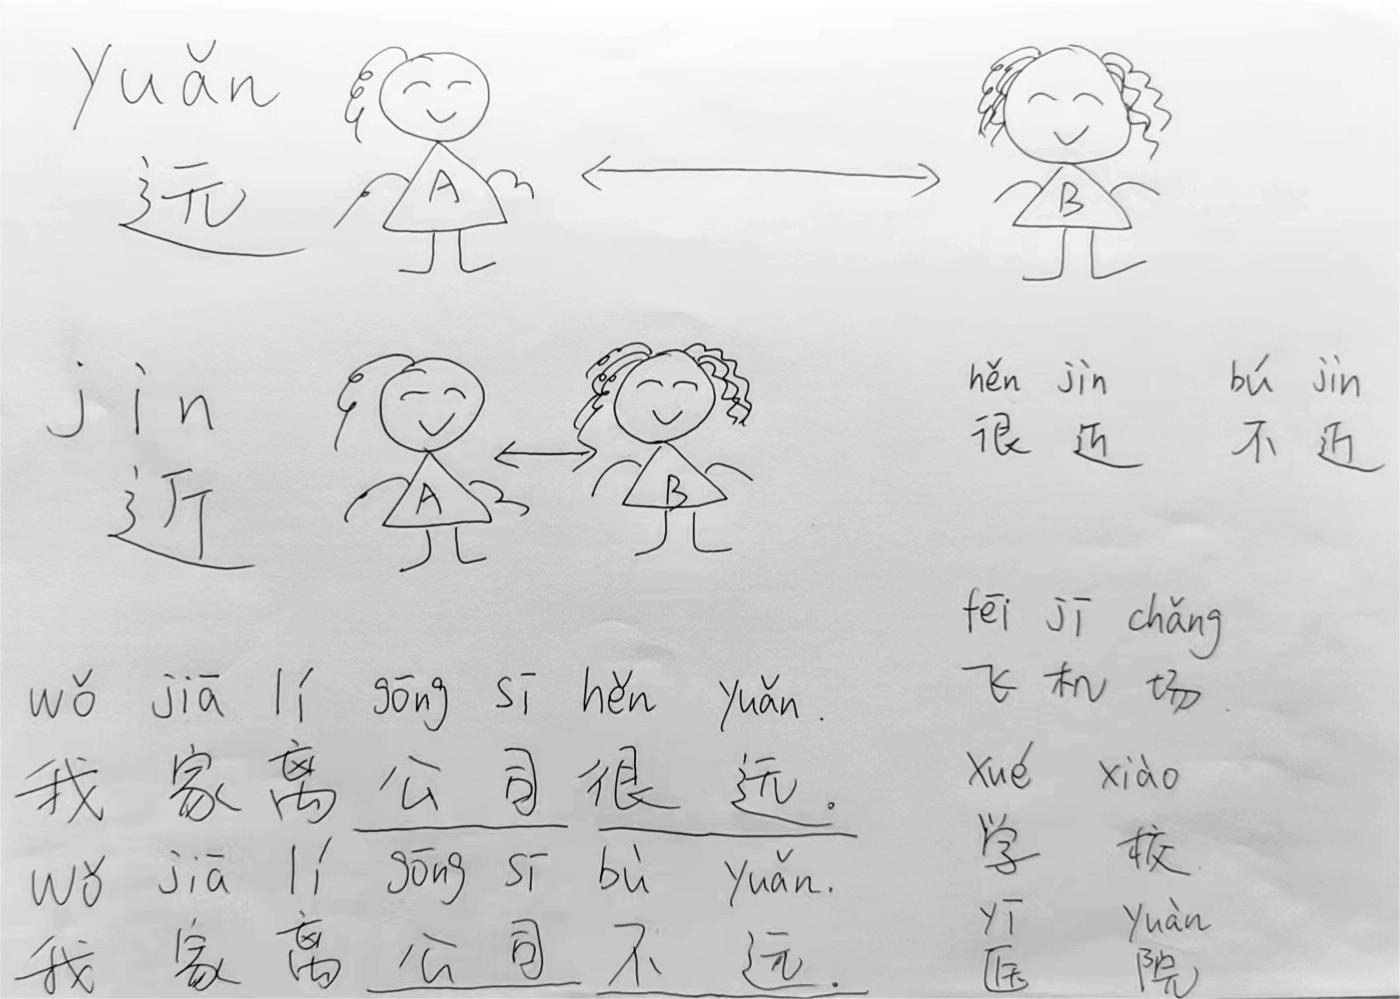 yuǎn
远
A
B
jìn
近
A
B
hěn jìn
很 近
bú jìn
不 近
fēi jī chǎng
飞 机 场
wǒ jiā lí gōng sī hěn yuǎn.
我 家 离 公 司 很 远.
wǒ jiā lí gōng sī bù yuǎn.
我 家 离 公 司 不 远.
xué xiào
学 校
yī yuàn
医 院